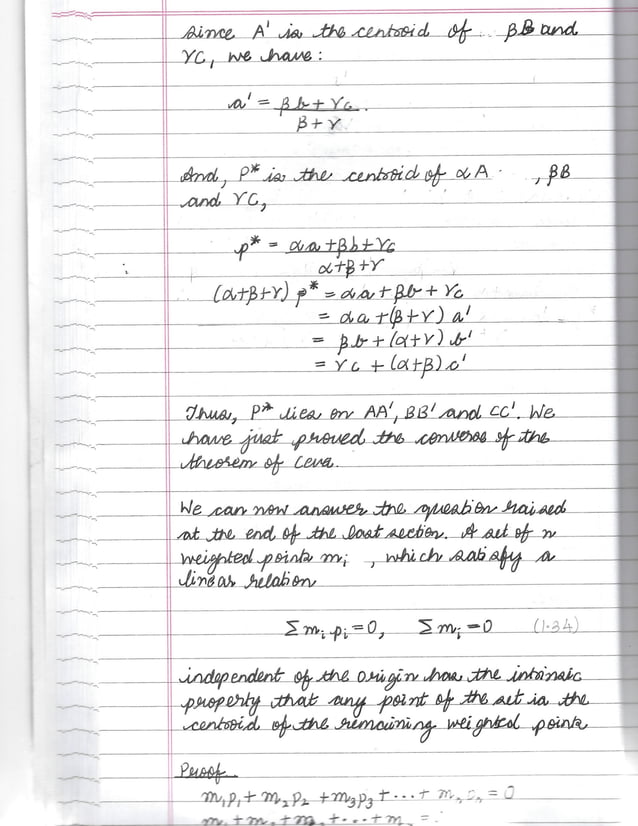 since A' is the centroid of .. βB and
γC, we have:
a' = βb + γc.
β + γ
And, P* is the centroid of αA , βB
and γC,
p* = αa + βb + γc
α + β + γ
(α+β+γ) p* = αa + βb + γc
= αa + (β+γ) a'
= βb + (α+γ) b'
= γc + (α+β) c'
Thus, P* lies on AA', BB' and CC'. We
have just proved the converse of the
theorem of Ceva.
We can now answer the question raised
at the end of the last section. A set of n
weighted points mi , which satisfy a
linear relation
Σ mi pi = 0, Σ mi = 0 (1.34)
independent of the origin has the intrinsic
property that any point of the set is the
centroid of the remaining weighted points
Proof
m1p1 + m2p2 + m3p3 + ... + mnpn = 0